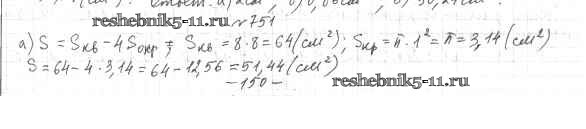 reshebnik5-11.ru №751
а) S = Sкв - 4 Sокр; Sкв = 8·8 = 64 (см²); Sкр = π·1² = π = 3,14 (см²)
S = 64 - 4·3,14 = 64 - 12,56 = 51,44 (см²)
-150-
reshebnik5-11.ru